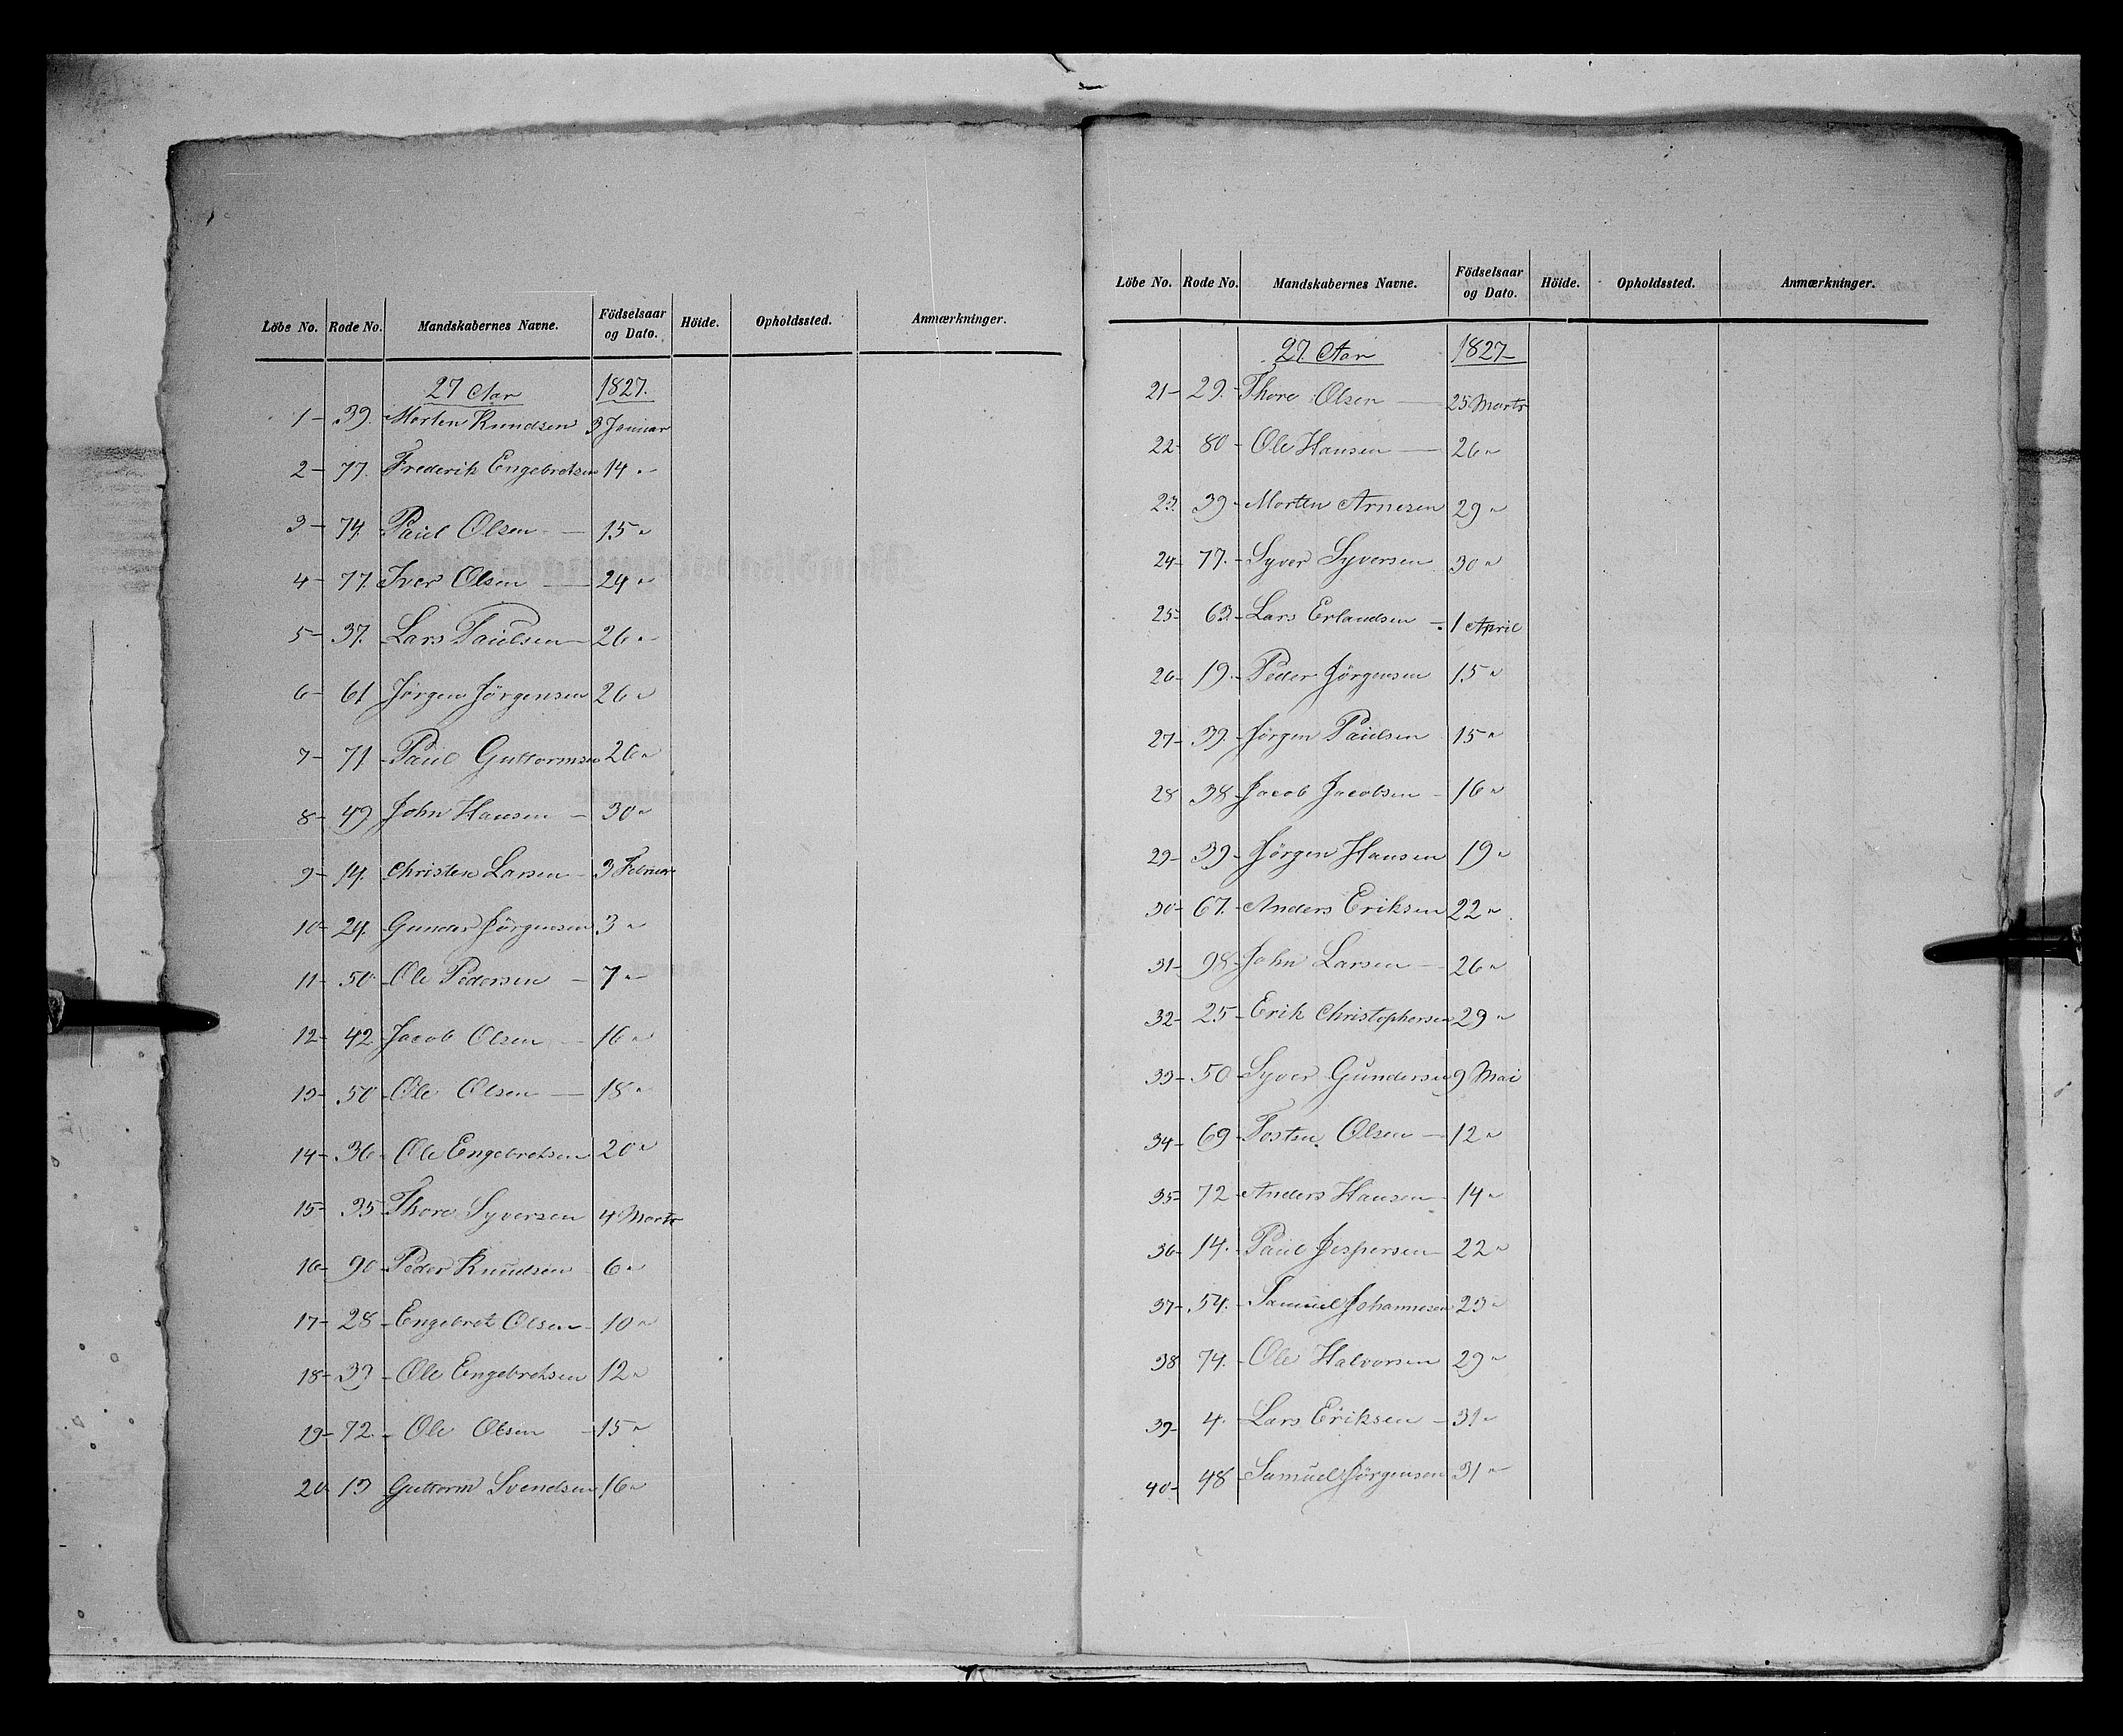 Löbe No. Rode No. Mandskabernes Navne. Födselsaar og Dato. Höide. Opholdssted. Anmærkninger.
27 Aar 1827.
1 - 39. Morten Knudsen 3 Januar
2 - 77. Frederik Engebretsen 14 "
3 - 74. Paul Olsen - 15 "
4 - 77. Iver Olsen - 24 "
5 - 37. Lars Paulsen - 26 "
6 - 61 Jörgen Jörgensen 26 "
7 - 71 - Paul Guttormsen 26 "
8 - 49 John Hansen - 30 "
9 - 14. Christen Larsen - 3 Februar
10 - 24. Gunder Jörgensen 3 "
11 - 50 - Ole Pedersen - 7 "
12 - 42 Jacob Olsen - 16 "
13 - 50 - Ole Olsen - 18 "
14 - 36 - Ole Engebretsen 20 "
15 - 35 Thore Syversen 4 Marts
16 - 90 - Peder Knudsen 6 "
17 - 28 - Engebret Olsen - 10 "
18 - 39 - Ole Engebretsen 12 "
19 - 72. - Ole Olsen - 15 "
20 - 13 Guttorm Svendsen 16 "
Löbe No. Rode No. Mandskabernes Navne. Födselsaar og Dato. Höide. Opholdssted. Anmærkninger.
27. Aar 1827
21 - 29. - Thore Olsen - 25 Marts
22 - 80 - Ole Hansen - 26 "
23. 39 - Morten Arnesen 29 "
24 - 77. - Syver Syversen 30 "
25 - 63 - Lars Erlandsen - 1 April
26 - 19. - Peder Jörgensen 15 "
27 - 39. - Jörgen Paulsen 15 "
28 38 - Jacob Jacobsen - 16 "
29 - 39 - Jörgen Hansen 19 "
30 - 67. - Anders Eriksen 22 "
31 - 98 - John Larsen - 26 "
32 - 25 - Erik Christophersen 29 "
33 - 50 - Syver Gundersen 9 Mai
34 - 69 - Tosten Olsen - 12 "
35 - 72 - Anders Hansen - 14 "
36 - 14. - Paul Jespersen - 22 "
37 - 54. - Samuel Johannesen 23 "
38 74. - Ole Halvorsen 29 "
39 - 4. - Lars Eriksen - 31 "
40 - 48 - Samuel Jörgensen 31 "